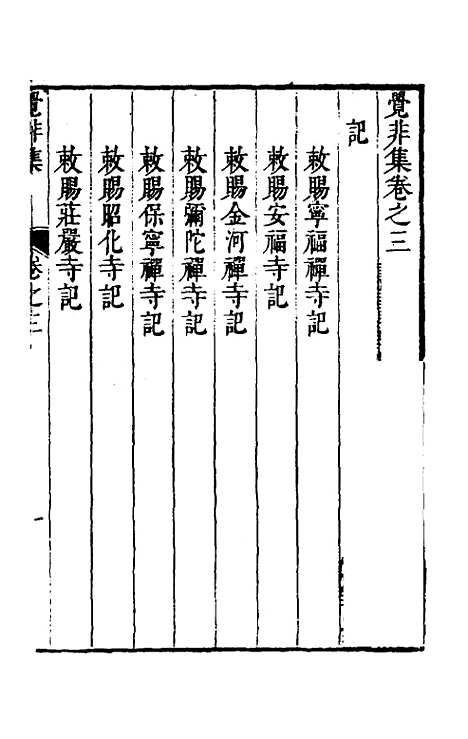 覺非集卷之三
記
敕賜寧福禪寺記
敕賜安福寺記
敕賜金河禪寺記
敕賜彌陀禪寺記
敕賜保寧禪寺記
敕賜昭化寺記
敕賜莊嚴寺記
覺非集
卷之三
一